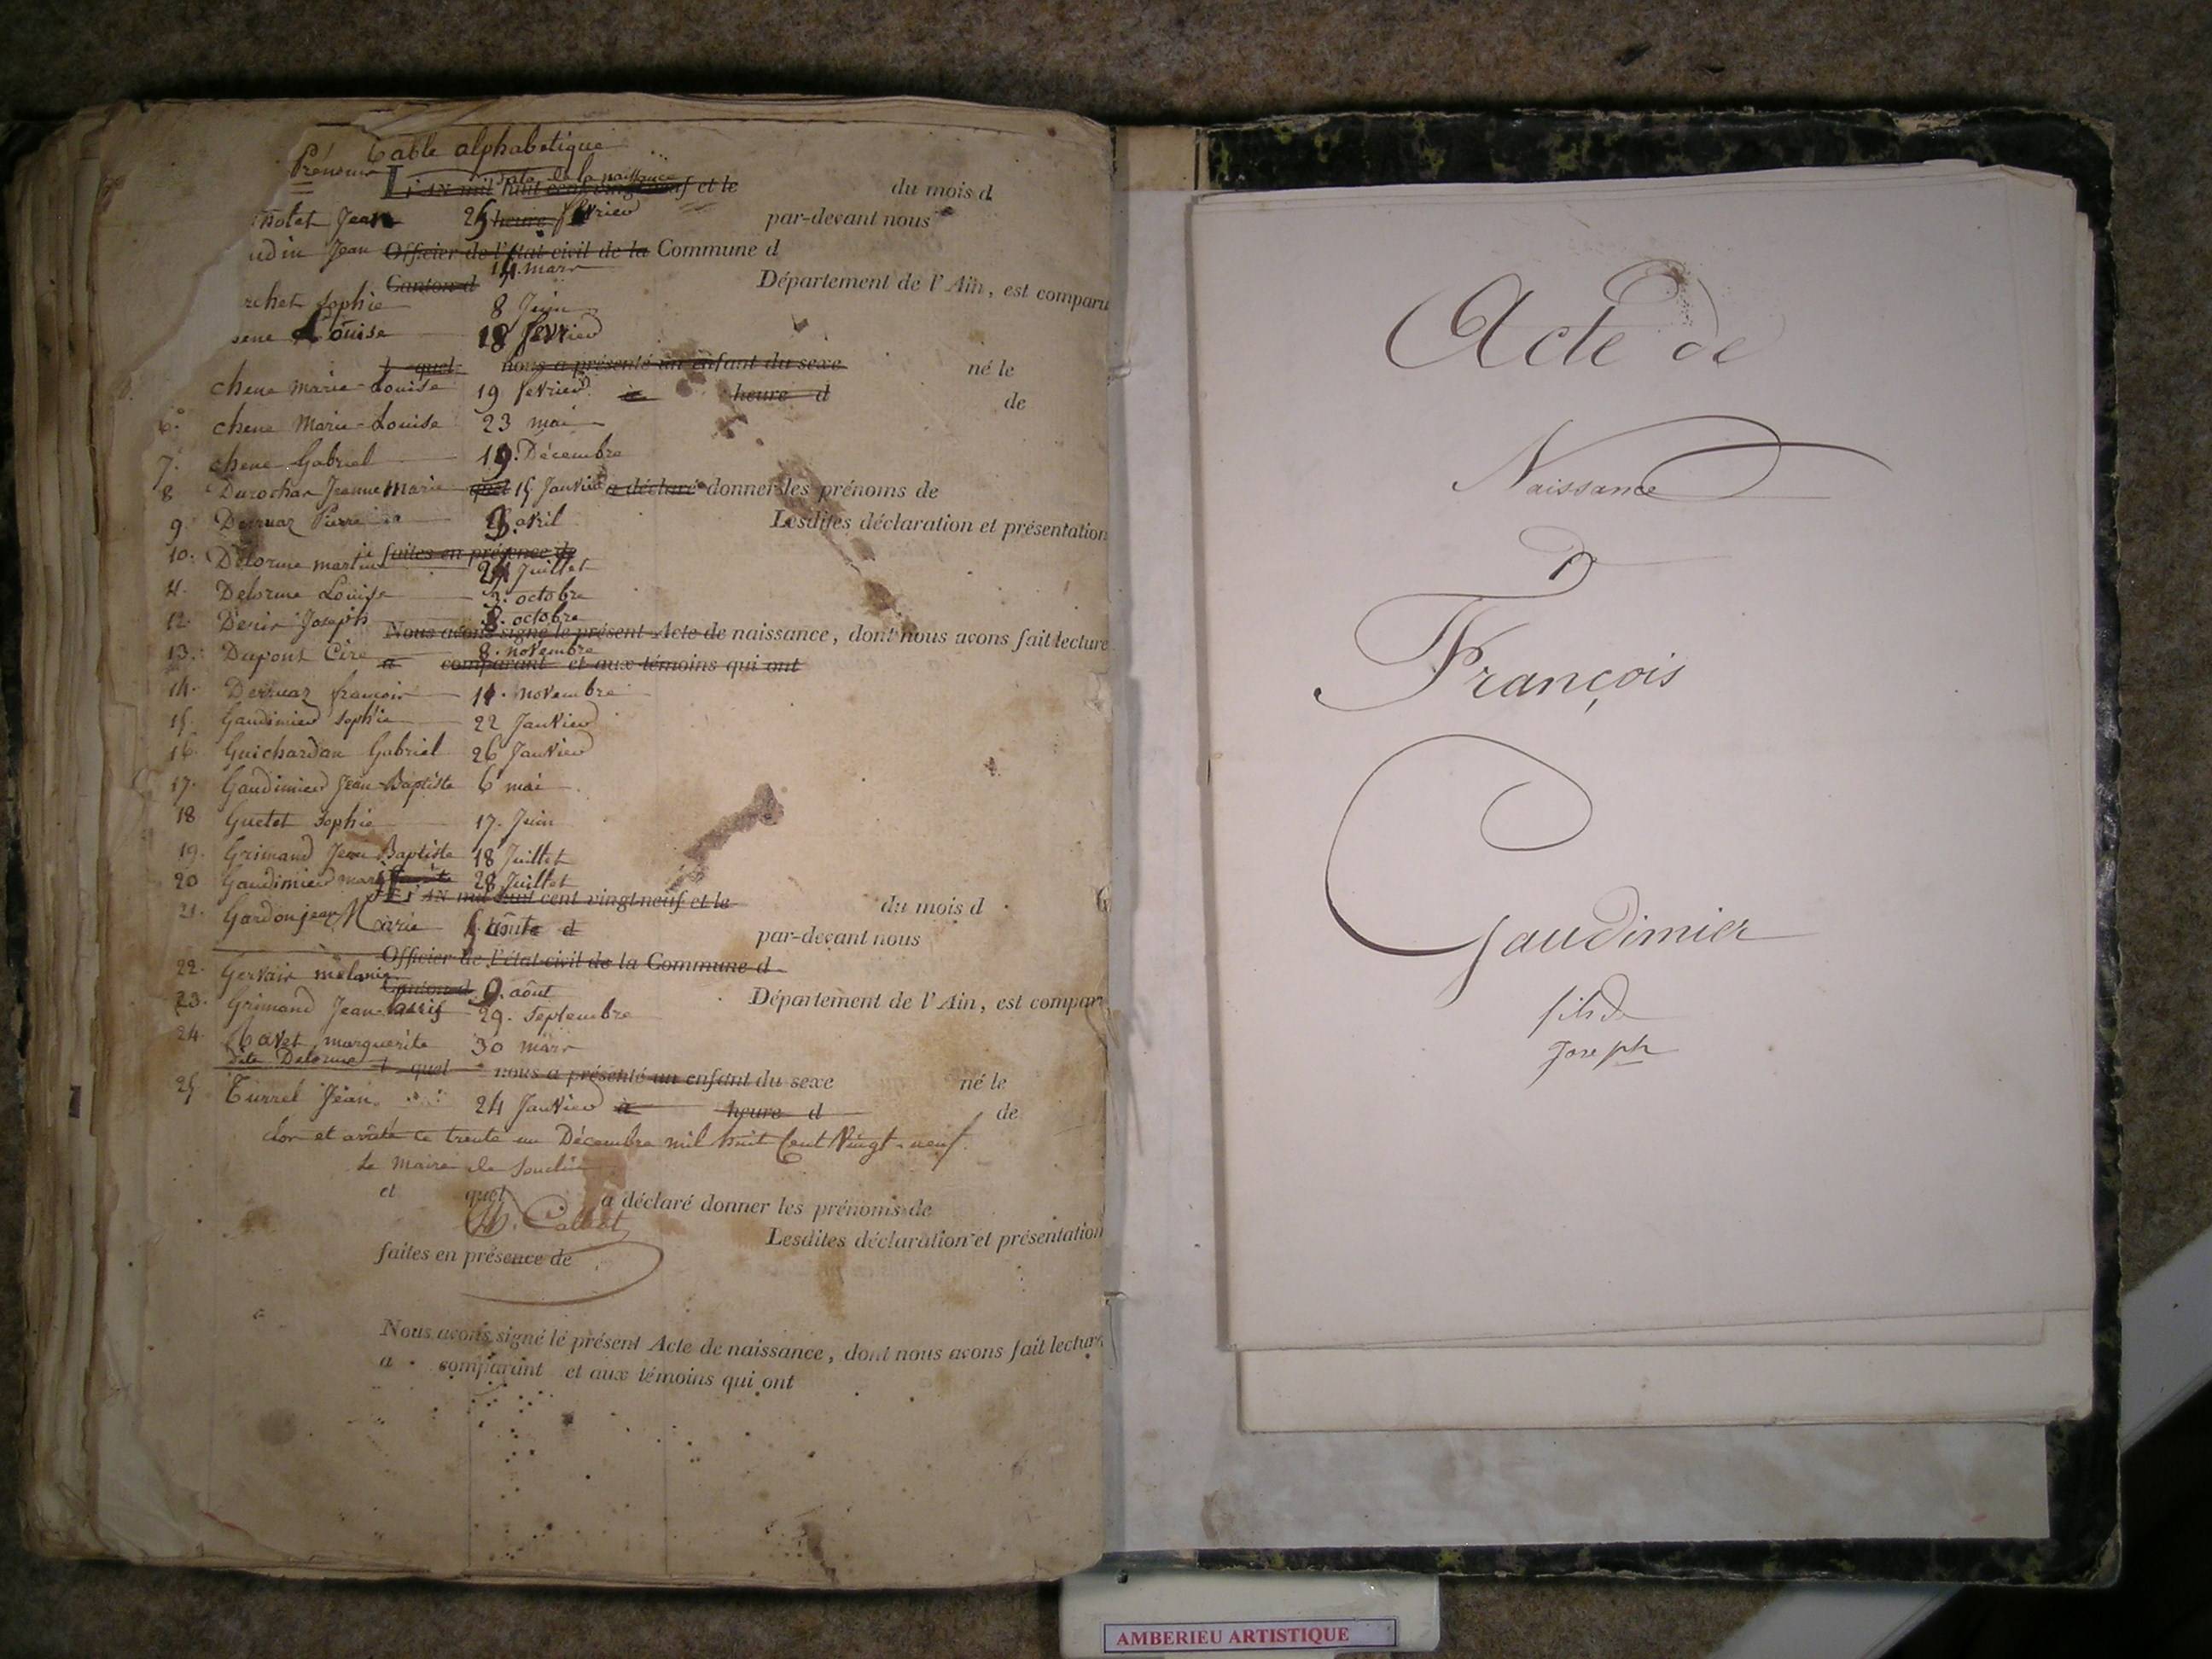 Table alphabetique
Prénoms
date de la naissance
L'AN mil huit cent vingt neuf et le du mois d
Jean 25 heure février par-devant nous
udin Jean Officier de l'état civil de la Commune d
14. mars
Canton d Département de l'Ain, est comparu
rchet Sophie 8 Juin
sene Louise 18 février
l quel nous a présenté un enfant du sexe né le
chene marie-Louise 19 février à heure d de
6. chene Marie-Louise 23 mai
7. chene Gabriel 19. Décembre
8 Durochar Jeanne Marie quel 15 Janvier a déclaré donner les prénoms de
9. Pierre avril Lesdites déclaration et présentation
10. Delorme martin faites en présence de
24 Juillet
11. Delorme Louise 3. octobre
12. Denis Joseph 8. octobre
Nous avons signé le présent Acte de naissance, dont nous avons fait lecture
13. Dupont Cire 8. novembre
a comparant et aux témoins qui ont
14. françois 11. novembre
15. Gaudimier Sophie 22 Janvier
16. Guichardon Gabriel 26 Janvier
17. Gaudimier Jean-Baptiste 6 mai
18 Guetet Sophie 17. Juin
19. Grimand Jean Baptiste 18 Juillet
20 Gaudimier 28 Juillet
L'AN mil huit cent vingt neuf et le du mois d
21. Gardon jean Marie août d par-devant nous
Officier de l'état civil de la Commune d
22. Gervais mélanie
Canton d 9. août Département de l'Ain, est compar
23. Grimand Jean 29. Septembre
24. marguerite 30 mars
dite Delorme l quel nous a présenté un enfant du sexe né le
25 Turrel Jean 24 Janvier à heure d de
clos et arrêté ce trente un Décembre mil huit Cent Vingt-neuf
Le Maire de Souclin
et quel a déclaré donner les prénoms de
Lesdites déclaration et présentation
faites en présence de
Nous avons signé le présent Acte de naissance, dont nous avons fait lecture
a comparant et aux témoins qui ont
Acte de
Naissance
D
François
Gaudimier
fils de
Joseph
AMBERIEU ARTISTIQUE